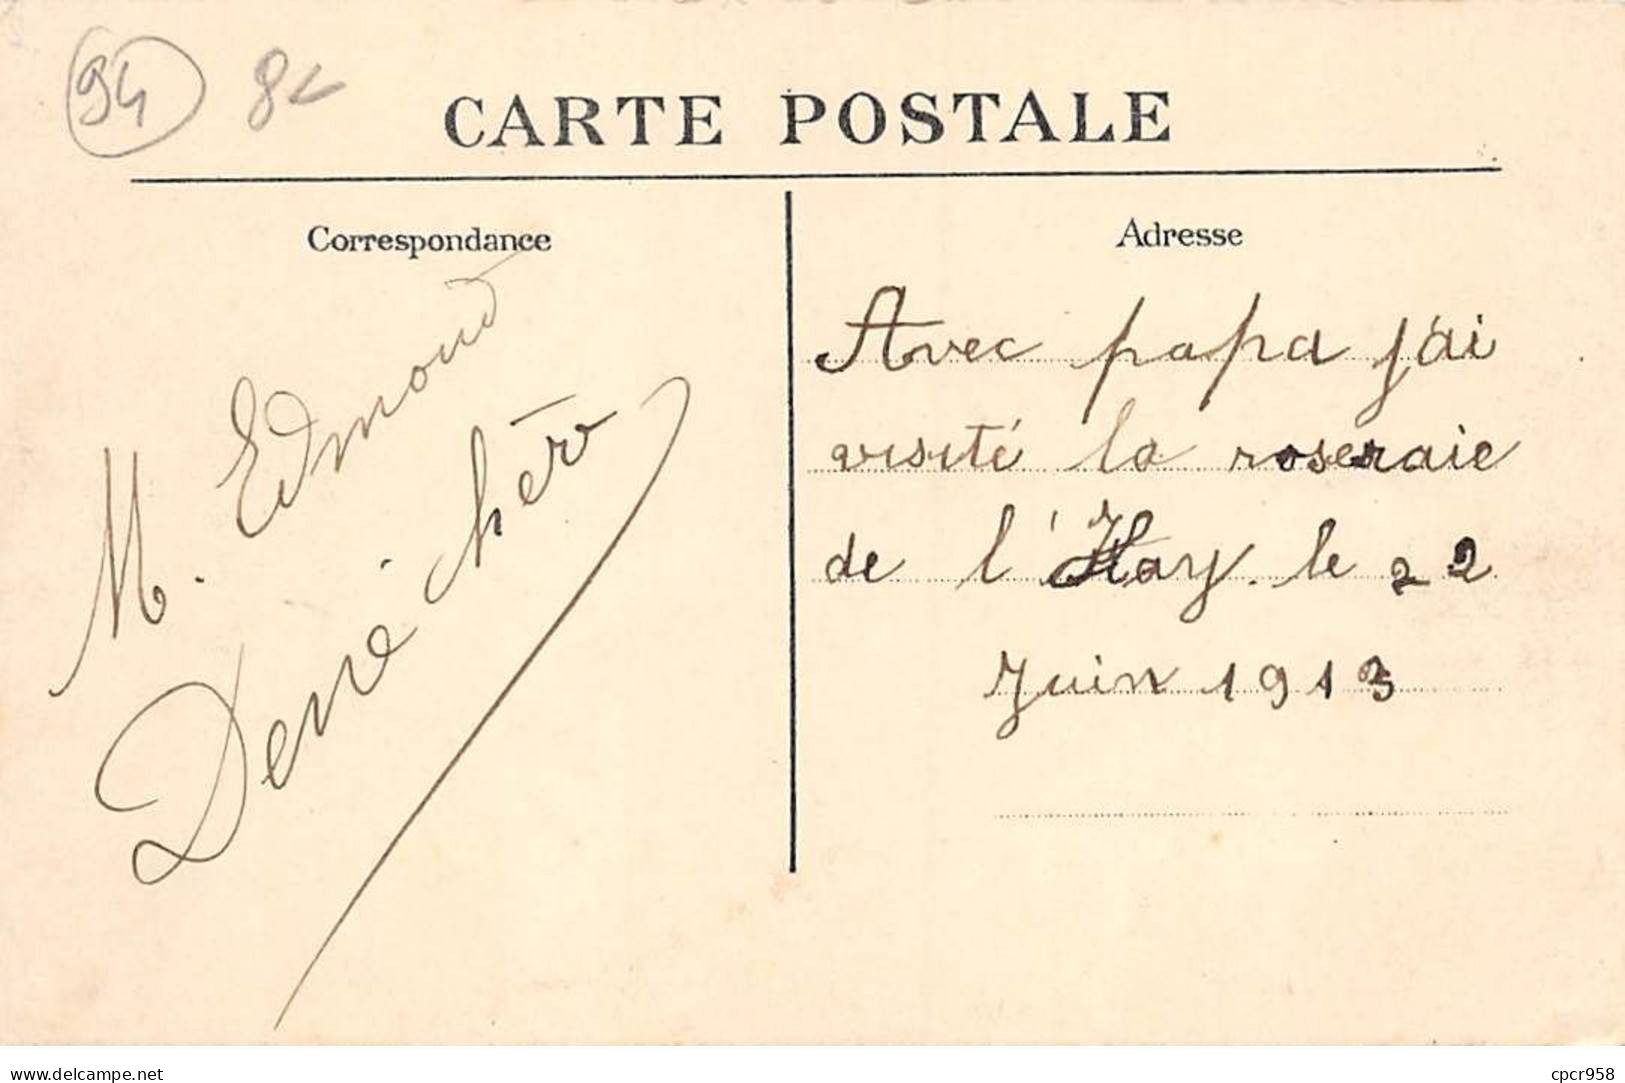 94 8
CARTE POSTALE
Correspondance
M. Edmond
Adresse
Avec papa j'ai
visité la roseraie
de l'Hay. le 22
Juin 1913
www.delcampe.net
cpcr958